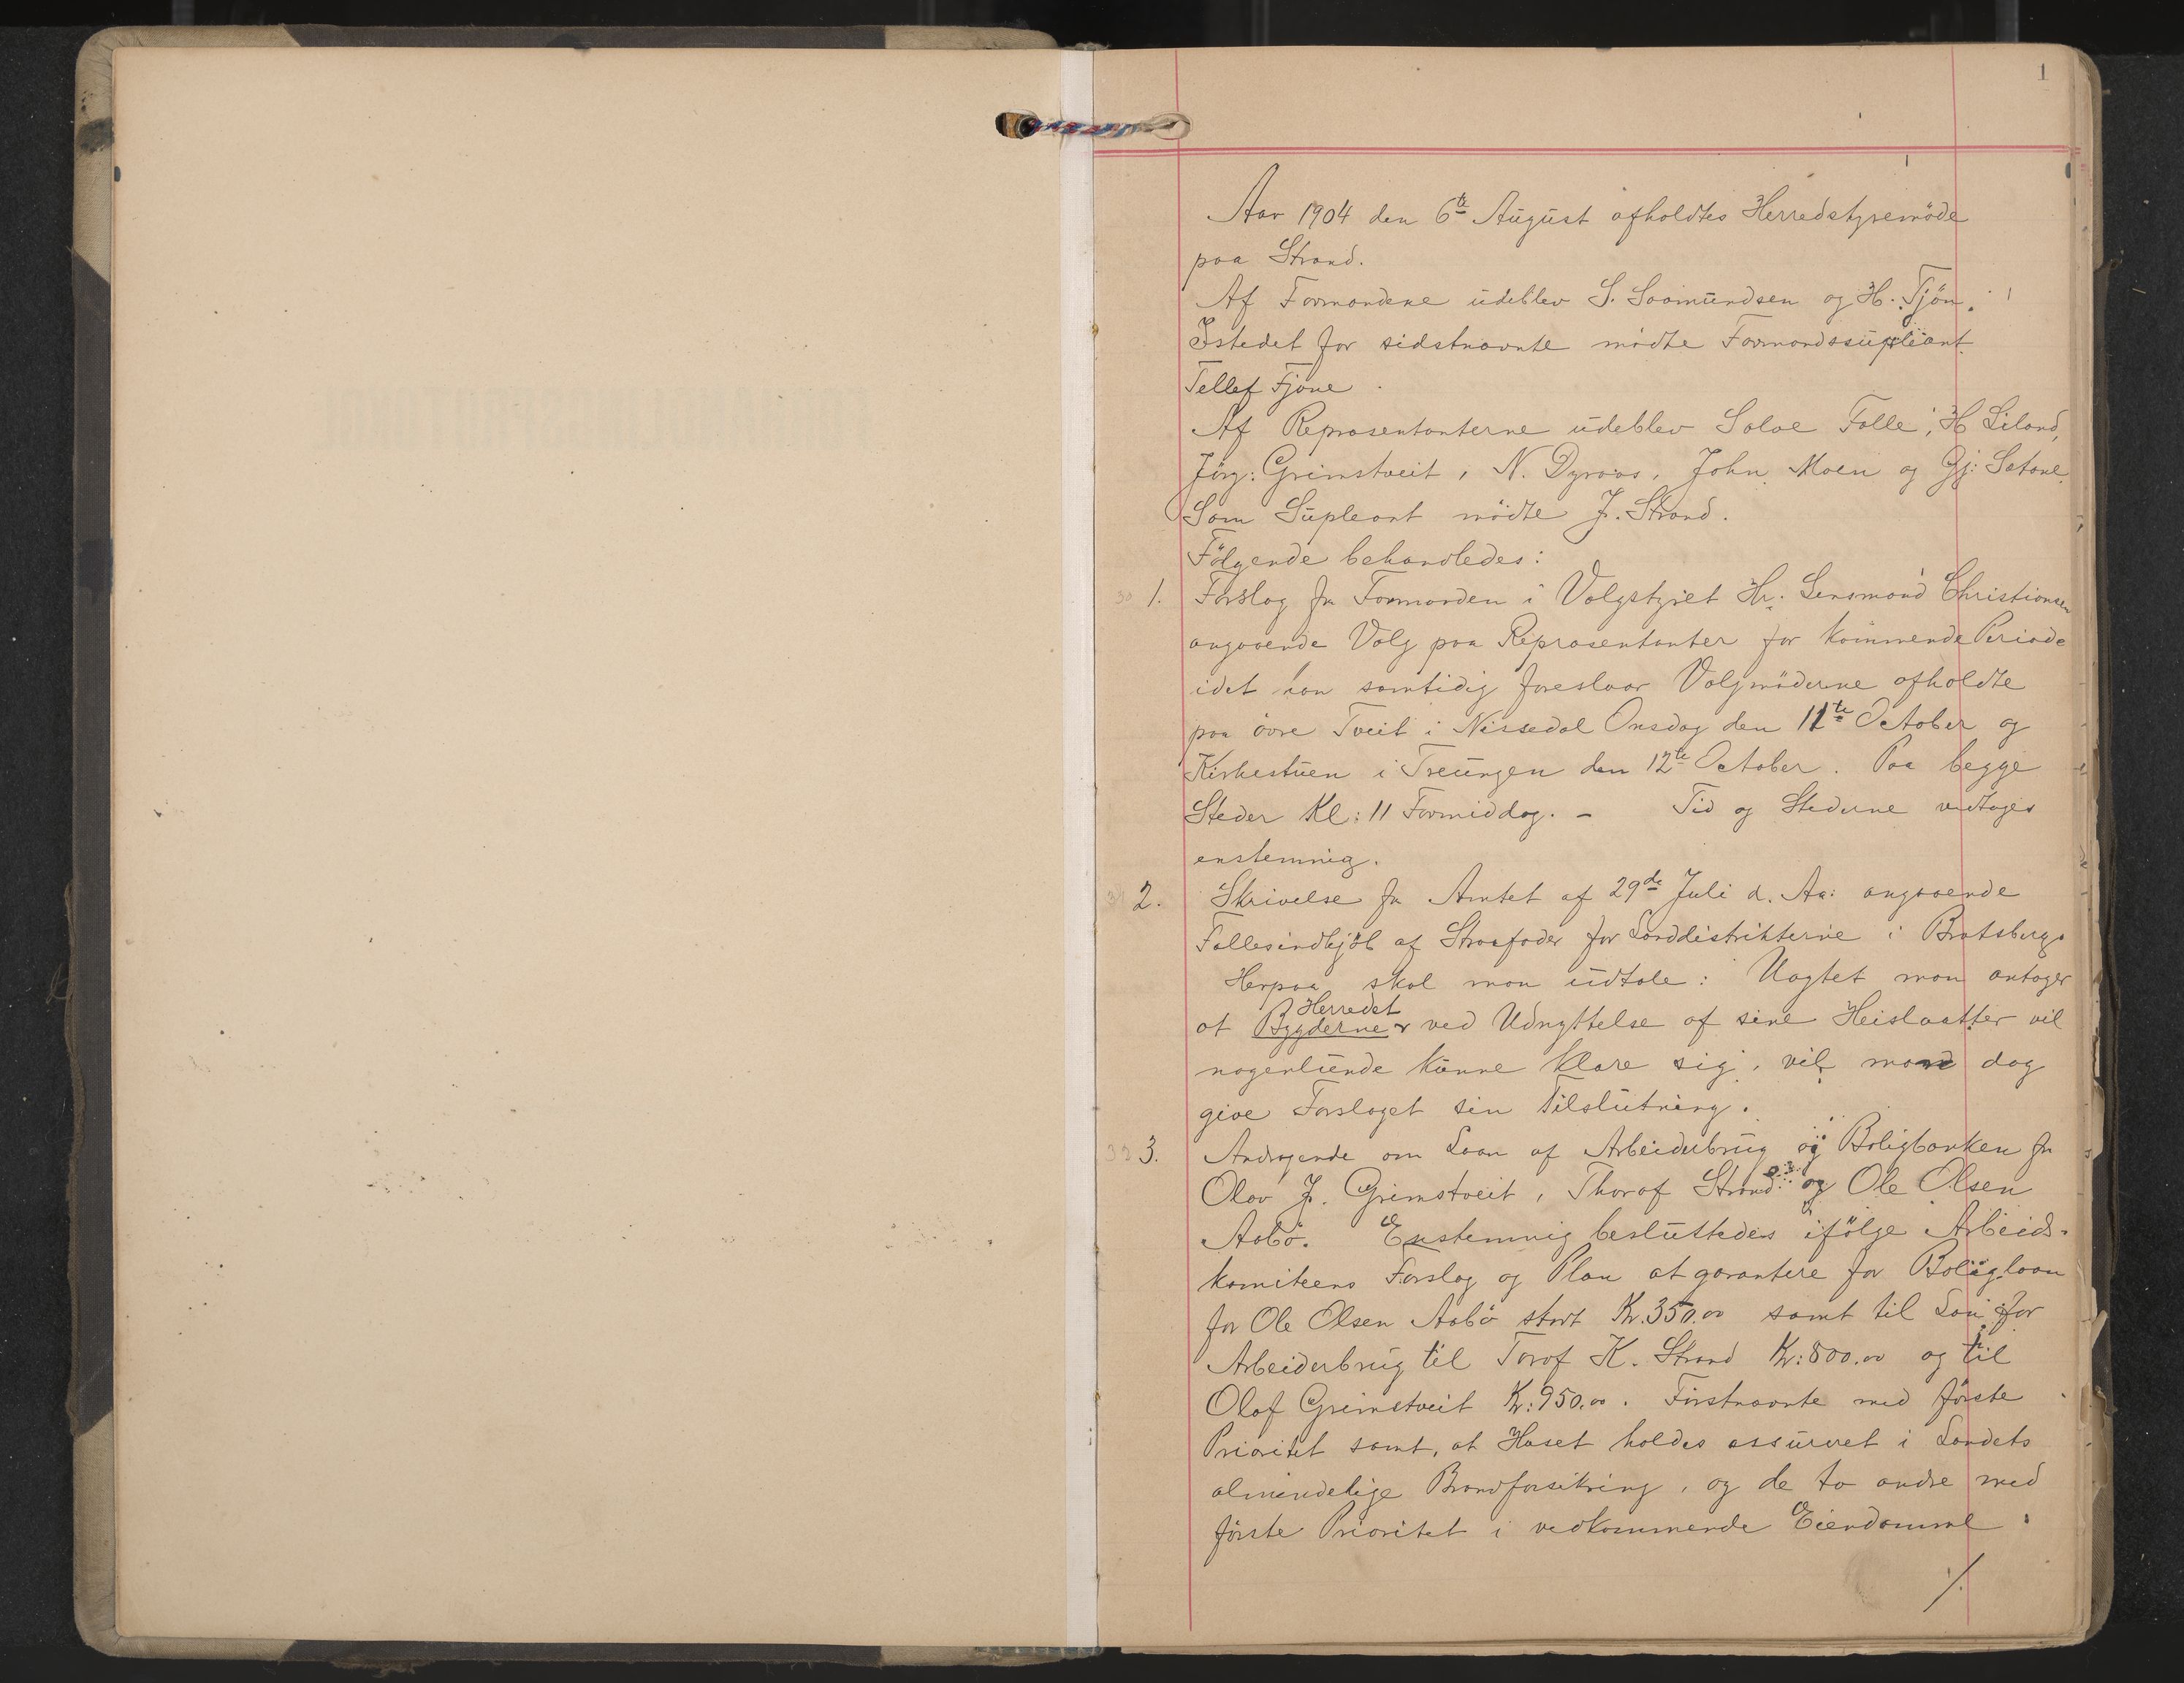 1
Aar 1904 den 6te August afholdtes Herredstyremöde
paa Strand.
Af Formændene udeblev S. Saamundsen og H. Tjön.
Istedet for sidstnævnte mödte Formandssupleant
Tellef Fjone.
Af Repræsentanterne udeblev Salve Falle, H Liland,
Jörg: Grimstveit, N. Dyraas, John Moen og Gj: Satane.
Som Supleant mödte J. Strand.
Fölgende behandledes:
30 1. Forslag fra Formanden i Valgstyret Hr. Lensmand Christiansen
angaaende Valg paa Repræsentanter for kommende Periode
idet han samtidig foreslaar Valgmöderne afholdte
paa övre Tveit i Nissedal Onsdag den 11te October og
Kirkestuen i Treungen den 12te October. Paa begge
Steder Kl: 11 Formiddag. - Tid og Stederne vedtoges
enstemmig.
31 2. Skrivelse fra Amtet af 29de Juli d. Aa: angaaende
Fællesindkjöb af Straafoder for Landdistrikterne i Bratsberg.
Herpaa skal man udtale: Uagtet man antager
Herredet
at Bygderne ved Udnyttelse af sine Heislaatter vil
nogenlunde kunne klare sig, vil man dog
give Forslaget sin Tilslutning.
32 3. Andragende om Laan af Arbeiderbrug og Boligbanken fra
Olav J. Grimstveit, Thorof Strand og Ole Olsen
Aabö. Enstemmig besluttedes ifölge Arbeids-
komiteens Forslag og Plan at garantere for Boliglaan
for Ole Olsen Aabö stort Kr. 350.00 samt til Laan for
Arbeiderbrug til Torof K. Strand Kr: 800.00 og til
Olaf Grimstveit Kr: 950.00. Förstnævnte med förste
Prioritet samt, at Huset holdes assureret i Landets
almindelige Brandforsikring, og de to andre med
förste Prioritet i vedkommende Eiendomme.
/.